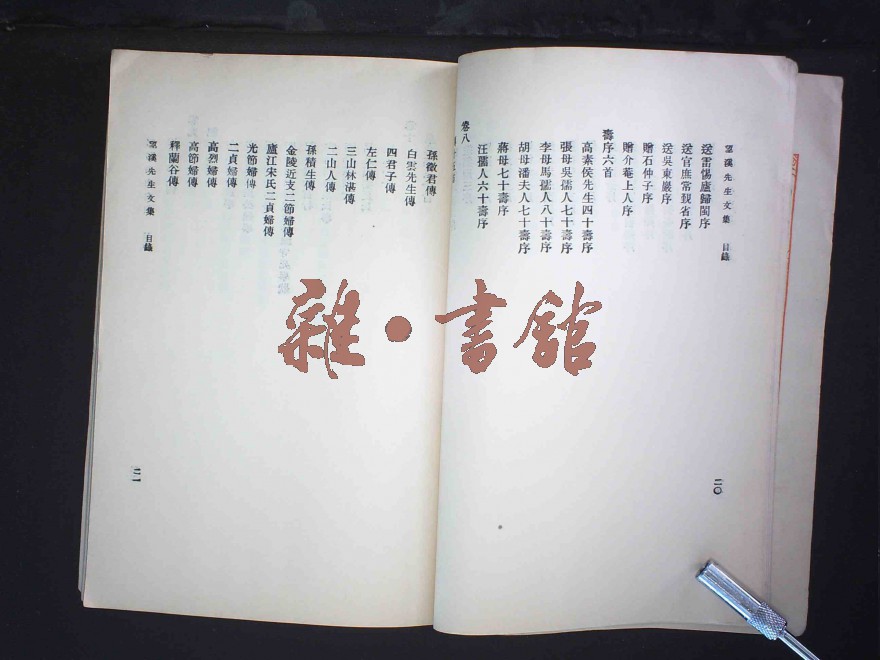 望溪先生文集 目錄
送雷惕廬歸閩序
送官庶常覲省序
送吳東巖序
贈石仲子序
贈介菴上人序
壽序六首
高素侯先生四十壽序
張母吳孺人七十壽序
李母馬孺人八十壽序
胡母潘夫人七十壽序
蔣母七十壽序
汪孺人六十壽序
卷八
二〇
孫徵君傳
白雲先生傳
四君子傳
左仁傳
三山林湛傳
二山人傳
孫積生傳
金陵近支二節婦傳
廬江宋氏二貞婦傳
光節婦傳
二貞婦傳
高烈婦傳
高節婦傳
釋蘭谷傳
望溪先生文集 目錄
二一
雜·書館